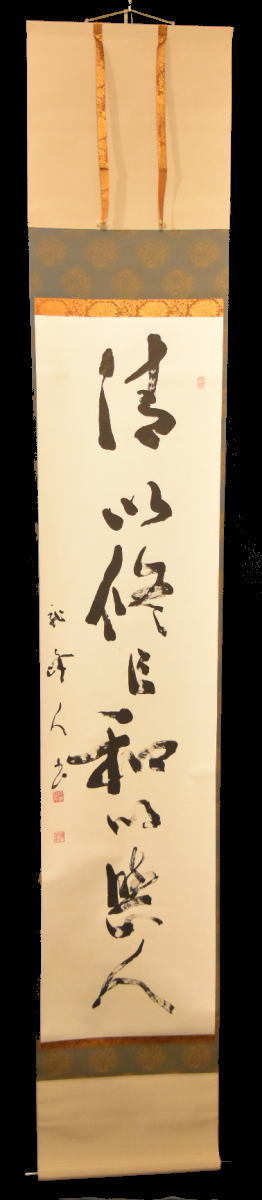 清以修己和以與人
峰人書